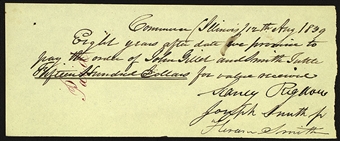 Commerce (Illinois) 12th Aug 1839
Eight years after date we promise to
pay the order of John Gillet and Smith Tuttle
Fifteen Hundred Dollars for value receive
Sidney Rigdon
Joseph Smith Jr
Hiram Smith